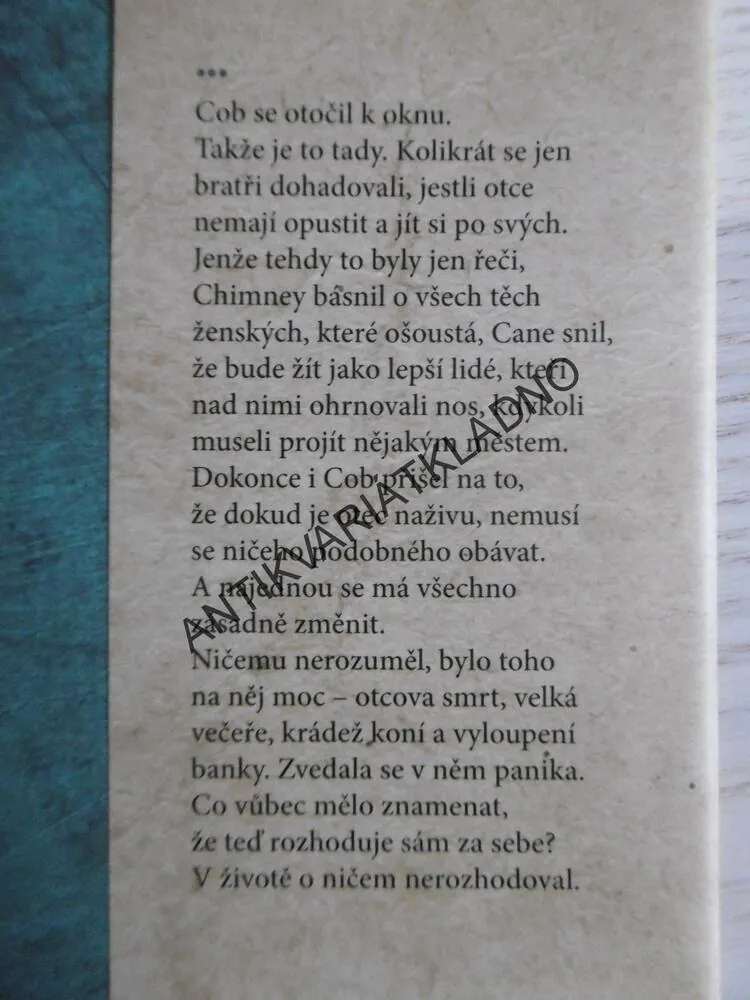 ...
Cob se otočil k oknu.
Takže je to tady. Kolikrát se jen
bratři dohadovali, jestli otce
nemají opustit a jít si po svých.
Jenže tehdy to byly jen řeči,
Chimney básnil o všech těch
ženských, které ošoustá, Cane snil,
že bude žít jako lepší lidé, kteří
nad nimi ohrnovali nos, kdykoli
museli projít nějakým městem.
Dokonce i Cob přišel na to,
že dokud je otec naživu, nemusí
se ničeho podobného obávat.
A najednou se má všechno
zásadně změnit.
Ničemu nerozuměl, bylo toho
na něj moc – otcova smrt, velká
večeře, krádež koní a vyloupení
banky. Zvedala se v něm panika.
Co vůbec mělo znamenat,
že teď rozhoduje sám za sebe?
V životě o ničem nerozhodoval.
ANTIKVARIATKLADNO